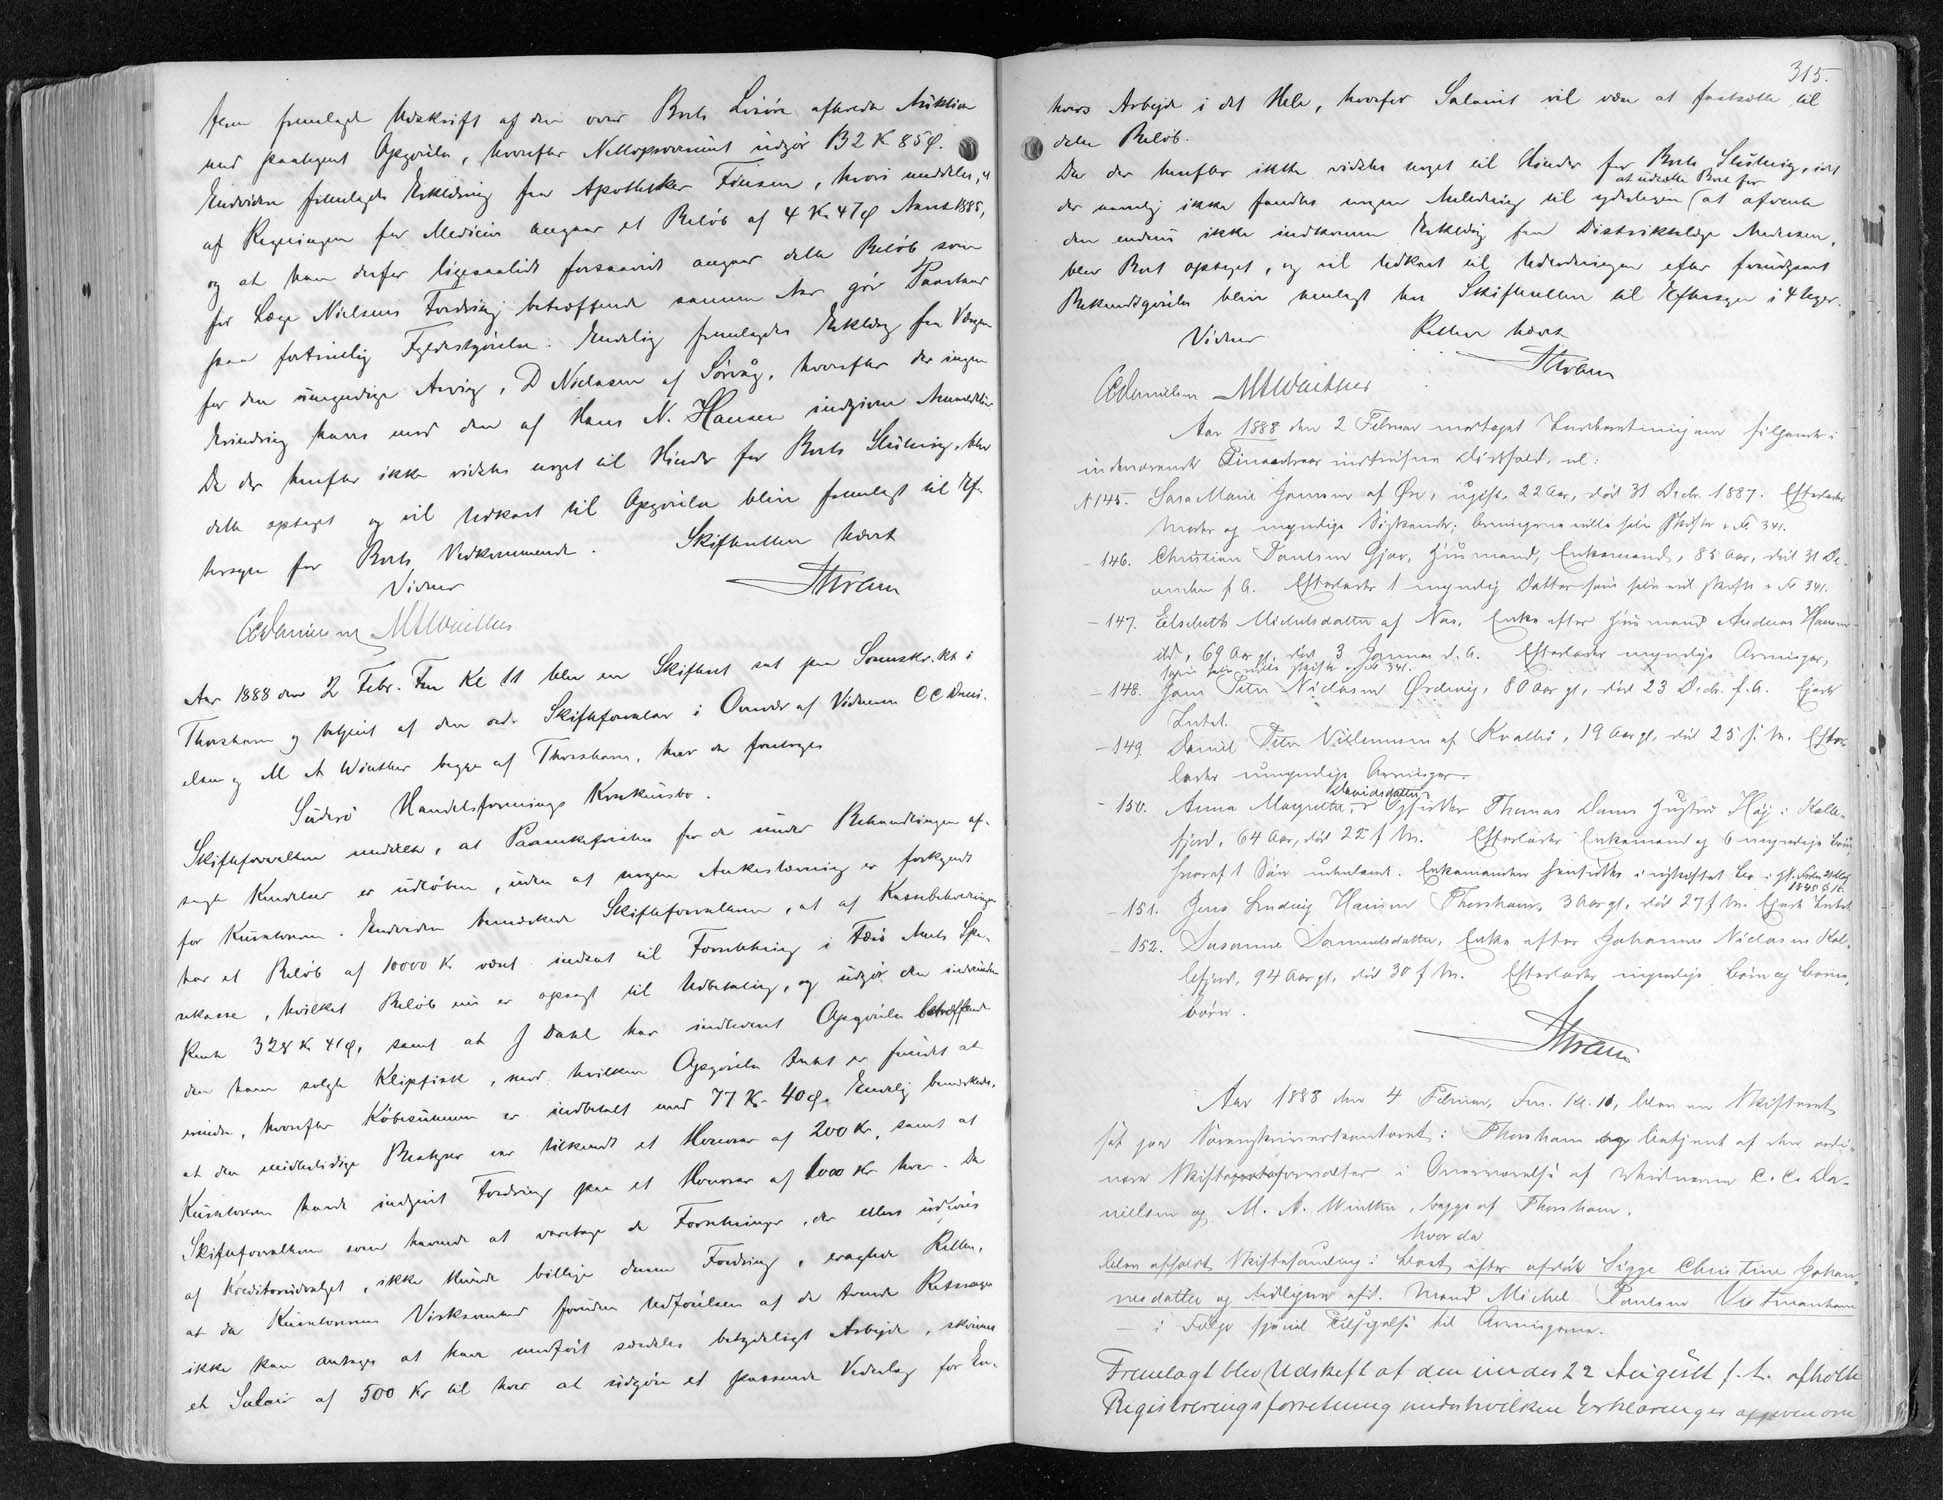 frem fremlagde Udskrift af den over Boets Løsøre afholdte Auktion
med paategnet Opgjørelse, hvorefter Nettoprovenuet udgjør 132 K 85 Ø.
Endvidere fremlagdes Erklæring fra Apotheker Finsen, hvori meddeles, at
af Regningen for Medicin angaar et Beløb af 4 Kr 47 Ø Aaret 1885,
og at han derfor ligesaalidt forsaavidt angaar dette Beløb som
for Læge Nielsens Fordring betræffende samme Aar gjør Paastand
paa fortrinlig Fyldestgjørelse. Endelig fremlagdes Erklæring fra Værgen
for den umyndige Arving, D Niclasen af Sørvåg, hvorefter der ingen
Erindring haves mod den af Hans N. Hansen indgivne Anmeldelse
Da der herefter ikke vidstes noget til Hinder for Boets Slutning, blev
dette optaget og vil Udkast til Opgjørelse blive fremlagt til Ef-
tersyn for Boets Vedkommende. Skifteretten hævet
Vidner
CCDanielsen MAWinther
Aar 1888 den 2 Febr. Fm Kl 11 blev en Skifteret sat paa Sorenskr. kt i
Thorshavn og betjent af den ord. Skifteforvalter i Overvær af Vidnerne C C Dani-
elsen og M A Winther begge af Thorshavn, hvor da foretoges
Suderø Handelsforenings Konkursbo.
Skifteforvalteren meddelte, at Paaankefristen for de under Behandlingen af-
sagte Kendelser er udløben, uden at nogen Ankestævning er forkyndt
for Kuratorerne. Endvidere bemærkede Skifteforvalteren, at af Kassebeholdningen
har et Beløb af 10000 Kr været indsat til Forrentning i Færø Amts Spa-
rekasse, hvilket Beløb nu er opsagt til Udbetaling, og udgjør den indvundne
Rente 328 Kr 41 Ø, samt at J Dahl har indleveret Opgjørelse betræffende
den ham solgte Klipfisk, mod hvilken Opgjørelse Intet er fundet at
erindre, hvorefter Købesummen er indbetalt med 77 Kr 40 Ø. Endelig bemærkedes,
at den midlertidige Bestyrer var tilkendt et Honorar af 200 Kr, samt at
Kuratorerne havde indgivet Fordring paa et Honorar af 1000 Kr hver. Da
Skifteforvalteren som havende at varetage de Forretninger, der ellers udføres
af Kreditorudvalget, ikke kunde billige denne Fordring, eragtede Retten,
at da Kuratorernes Virksomhed foruden Udførelsen af de tvende Retssager
ikke kan antages at have medført særdeles betydeligt Arbejde, skønnes
et Salair af 500 Kr til hver at udgøre et passende Vederlag for En-
315.
hvers Arbejde i det Hele, hvorfor Salairet vil være at fastsætte til
dette Beløb.
Da der herefter ikke vidstes noget til Hinder for Boets Slutning, idet
at udsætte Boet for
der nemlig ikke fandtes nogen Anledning til yderligere at afvente
den endnu ikke indkomne Erklæring fra Distriktslæge Andersen,
blev Boet optaget, og vil Udkast til Udlodningen efter forudgaaet
Bekendtgjørelse blive henlagt hos Skifteretten til Eftersyn i 4 Uger.
Vidner Retten hævet
CCDanielsen MAWinther
Aar 1888 den 2 Februar modtaget Indberetning om følgende i
indeværende Finantsaar indtrufne Dødsfald, nl:
N 145. Sara Marie Joensen af Øre, ugift, 22 Aar, død 31 Decbr. 1887. Efterlader
Moder og myndige Søskende; Arvingerne ville selv skifte. No 341.
- 146. Christian Poulsen Gjov, Husmand, Enkemand, 85 Aar, død 31 De-
cember f. A. Efterlader 1 myndig Datter som selv vil skifte. No 341.
- 147. Elsebeth Michelsdatter af Næs, Enke efter Husmand Andreas Hansen
ibd, 69 Aar gl, død 3 Januar d. A. Efterlader myndige Arvinger,
som selv ville skifte. No 341.
- 148. Joen Peter Niclasen Ørdevig, 80 Aar gl, død 23 Decbr. f. A. Ejede
Intet.
- 149 Daniel Peter Villumsen af Kvalbø, 19 Aar gl, død 25 f. M. Efter-
lader umyndige Arvinger.
Davidsdatter
- 150. Anna Margrethe, g Opsidder Thomas Dams Hustru Høj i Kolle-
fjord, 64 Aar, død 22 f M. Efterlader Enkemand og 6 myndige Børn,
hvoraf 1 Søn udenlands. Enkemanden hensidder i uskiftet Bo
1845 § 18.
- 151. Jens Ludvig Hansen Thorshavn, 3 Aar gl, død 27 f M. Ejede Intet
- 152. Susanne Samuelsdatter, Enke efter Johannes Niclasen Kol-
lefjord, 94 Aar gl, død 30 f M. Efterlader myndige Børn og Børne-
børn.
Aar 1888 den 4 Februar, Fm. Kl. 11, blev en Skifteret
sat paa Sorenskriverkontoret i Thorshavn og betjent af den ordi-
nære Skifteforvalter i Overværelse af Vidnerne C. C. Da-
nielsen og M. A. Winther, begge af Thorshavn,
hvor da
blev afholdt Skiftesamling i Boet efter afdøde Sigge Christine Johan-
nesdatter og tidligere afd. Mand Michel Poulsen Vestmanhavn
— i Følge speciel Tilsigelse til Arvingerne.
Fremlagt blev Udskrift af den under 22 August f. A. afholdte
Registreringsforretning under hvilken Erklæringer afgiven om